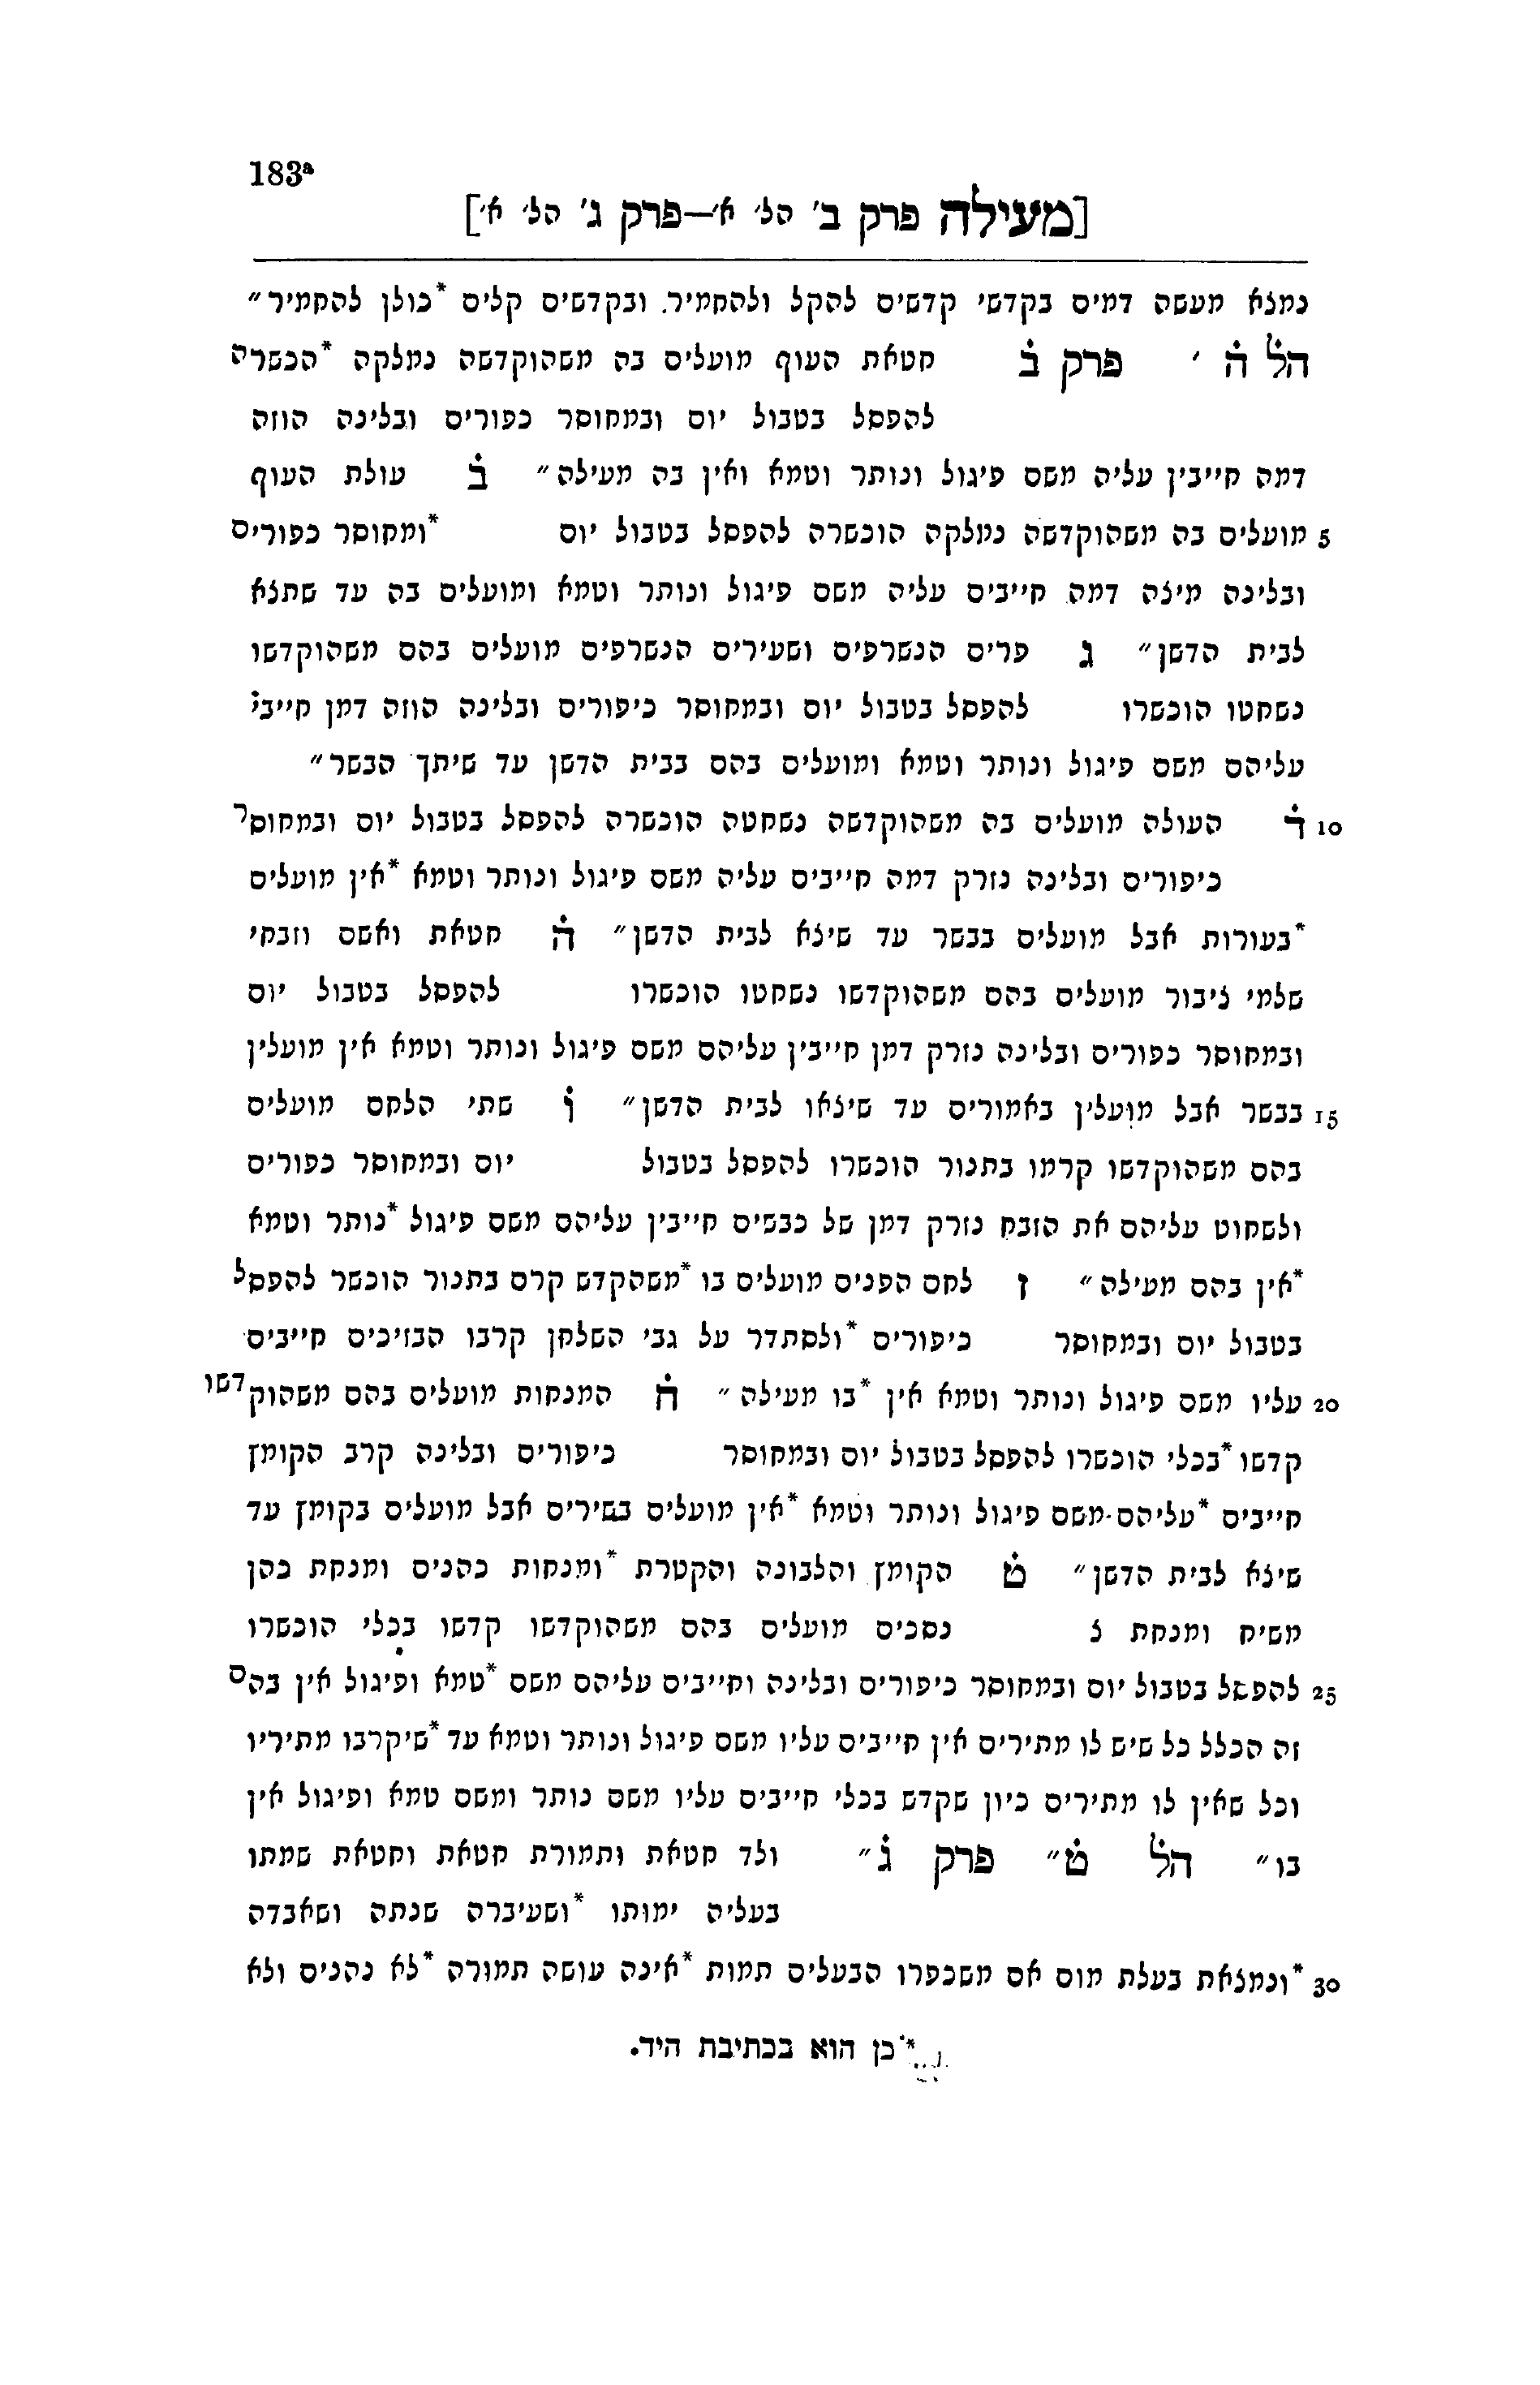 183ᵃ
[מעילה פרק ב' הל' א'—פרק ג' הל' א']
נמצא מעשה דמים בקדשי קדשים להקל ולהחמיר. ובקדשים קלים *כולן להחמיר״
הל ה ׳ פרק ב חטאת העוף מועלים בה משהוקדשה נמלקה *הכשרה
להפסל בטבול יום ובמחוסר כפורים ובלינה הוזה
דמה חייבין עליה משם פיגול ונותר וטמא ואין בה מעילה״ ב עולת העוף
5 מועלים בה משהוקדשה נמלקה הוכשרה להפסל בטבול יום *ומחוסר כפורים
ובלינה מיצה דמה חייבים עליה משם פיגול ונותר וטמא ומועלים בה עד שתצא
לבית הדשן״ ג פרים הנשרפים ושעירים הנשרפים מועלים בהם משהוקדשו
נשחטו הוכשרו להפסל בטבול יום ובמחוסר כיפורים ובלינה הוזה דמן חייבי׳
עליהם משם פיגול ונותר וטמא ומועלים בהם בבית הדשן עד שיתך הבשר״
10 ד העולה מועלים בה משהוקדשה נשחטה הוכשרה להפסל בטבול יום ובמחוסר
כיפורים ובלינה נזרק דמה חייבים עליה משם פיגול ונותר וטמא *אין מועלים
*בעורות אבל מועלים בבשר עד שיצא לבית הדשן״ ה חטאת ואשם וזבחי
שלמי ציבור מועלים בהם משהוקדשו נשחטו הוכשרו להפסל בטבול יום
ובמחוסר כפורים ובלינה נזרק דמן חייבין עליהם משם פיגול ונותר וטמא אין מועלין
15 בבשר אבל מועלין באמורים עד שיצאו לבית הדשן״ ו שתי הלחם מועלים
בהם משהוקדשו קרמו בתנור הוכשרו להפסל בטבול יום ובמחוסר כפורים
ולשחוט עליהם את הזבח נזרק דמן של כבשים חייבין עליהם משם פיגול *נותר וטמא
*אין בהם מעילה״ ז לחם הפנים מועלים בו *משהקדש קרם בתנור הוכשר להפסל
בטבול יום ובמחוסר כיפורים *ולסתדר על גבי השלחן קרבו הבזיכים חייבים
20 עליו משם פיגול ונותר וטמא אין *בו מעילה״ ח המנחות מועלים בהם משהוקדשו
קדשו *בכלי הוכשרו להפסל בטבול יום ובמחוסר כיפורים ובלינה קרב הקומץ
חייבים *עליהם משם פיגול ונותר וטמא *אין מועלים בשירים אבל מועלים בקומץ עד
שיצא לבית הדשן״ ט הקומץ והלבונה והקטרת *ומנחות כהנים ומנחת כהן
משיח ומנחת נ נסכים מועלים בהם משהוקדשו קדשו בכלי הוכשרו
25 להפסל בטבול יום ובמחוסר כיפורים ובלינה וחייבים עליהם משם *טמא ופיגול אין בהם
זה הכלל כל שיש לו מתירים אין חייבים עליו משם פיגול ונותר וטמא עד *שיקרבו מתיריו
וכל שאין לו מתירים כיון שקדש בכלי חייבים עליו משם נותר ומשם טמא ופיגול אין
בו״ הל ט״ פרק ג״ ולד חטאת ותמורת חטאת וחטאת שמתו
בעליה ימותו *ושעיברה שנתה ושאבדה
30 *ונמצאת בעלת מום אם משכפרו הבעלים תמות *אינה עושה תמורה *לא נהנים ולא
*כן הוא בכתיבת היד.